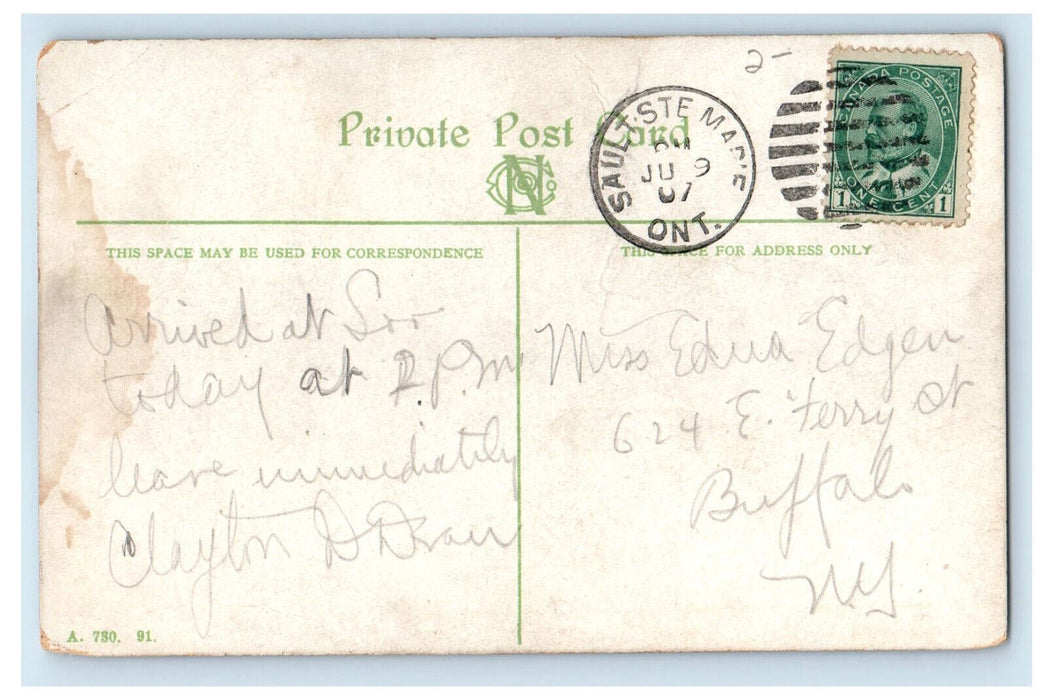 2-
Private Post Card
CANADA POSTAGE
1 ONE CENT 1
SAULT STE MARIE
PM
JU 9
07
ONT.
THIS SPACE MAY BE USED FOR CORRESPONDENCE
THIS SPACE FOR ADDRESS ONLY
Arrived at Soo
today at 2 P.M
leave immediatily
Clayton D
Miss Edna Edgen
624 E. Ferry St
Buffalo
N.Y.
A. 730. 91.